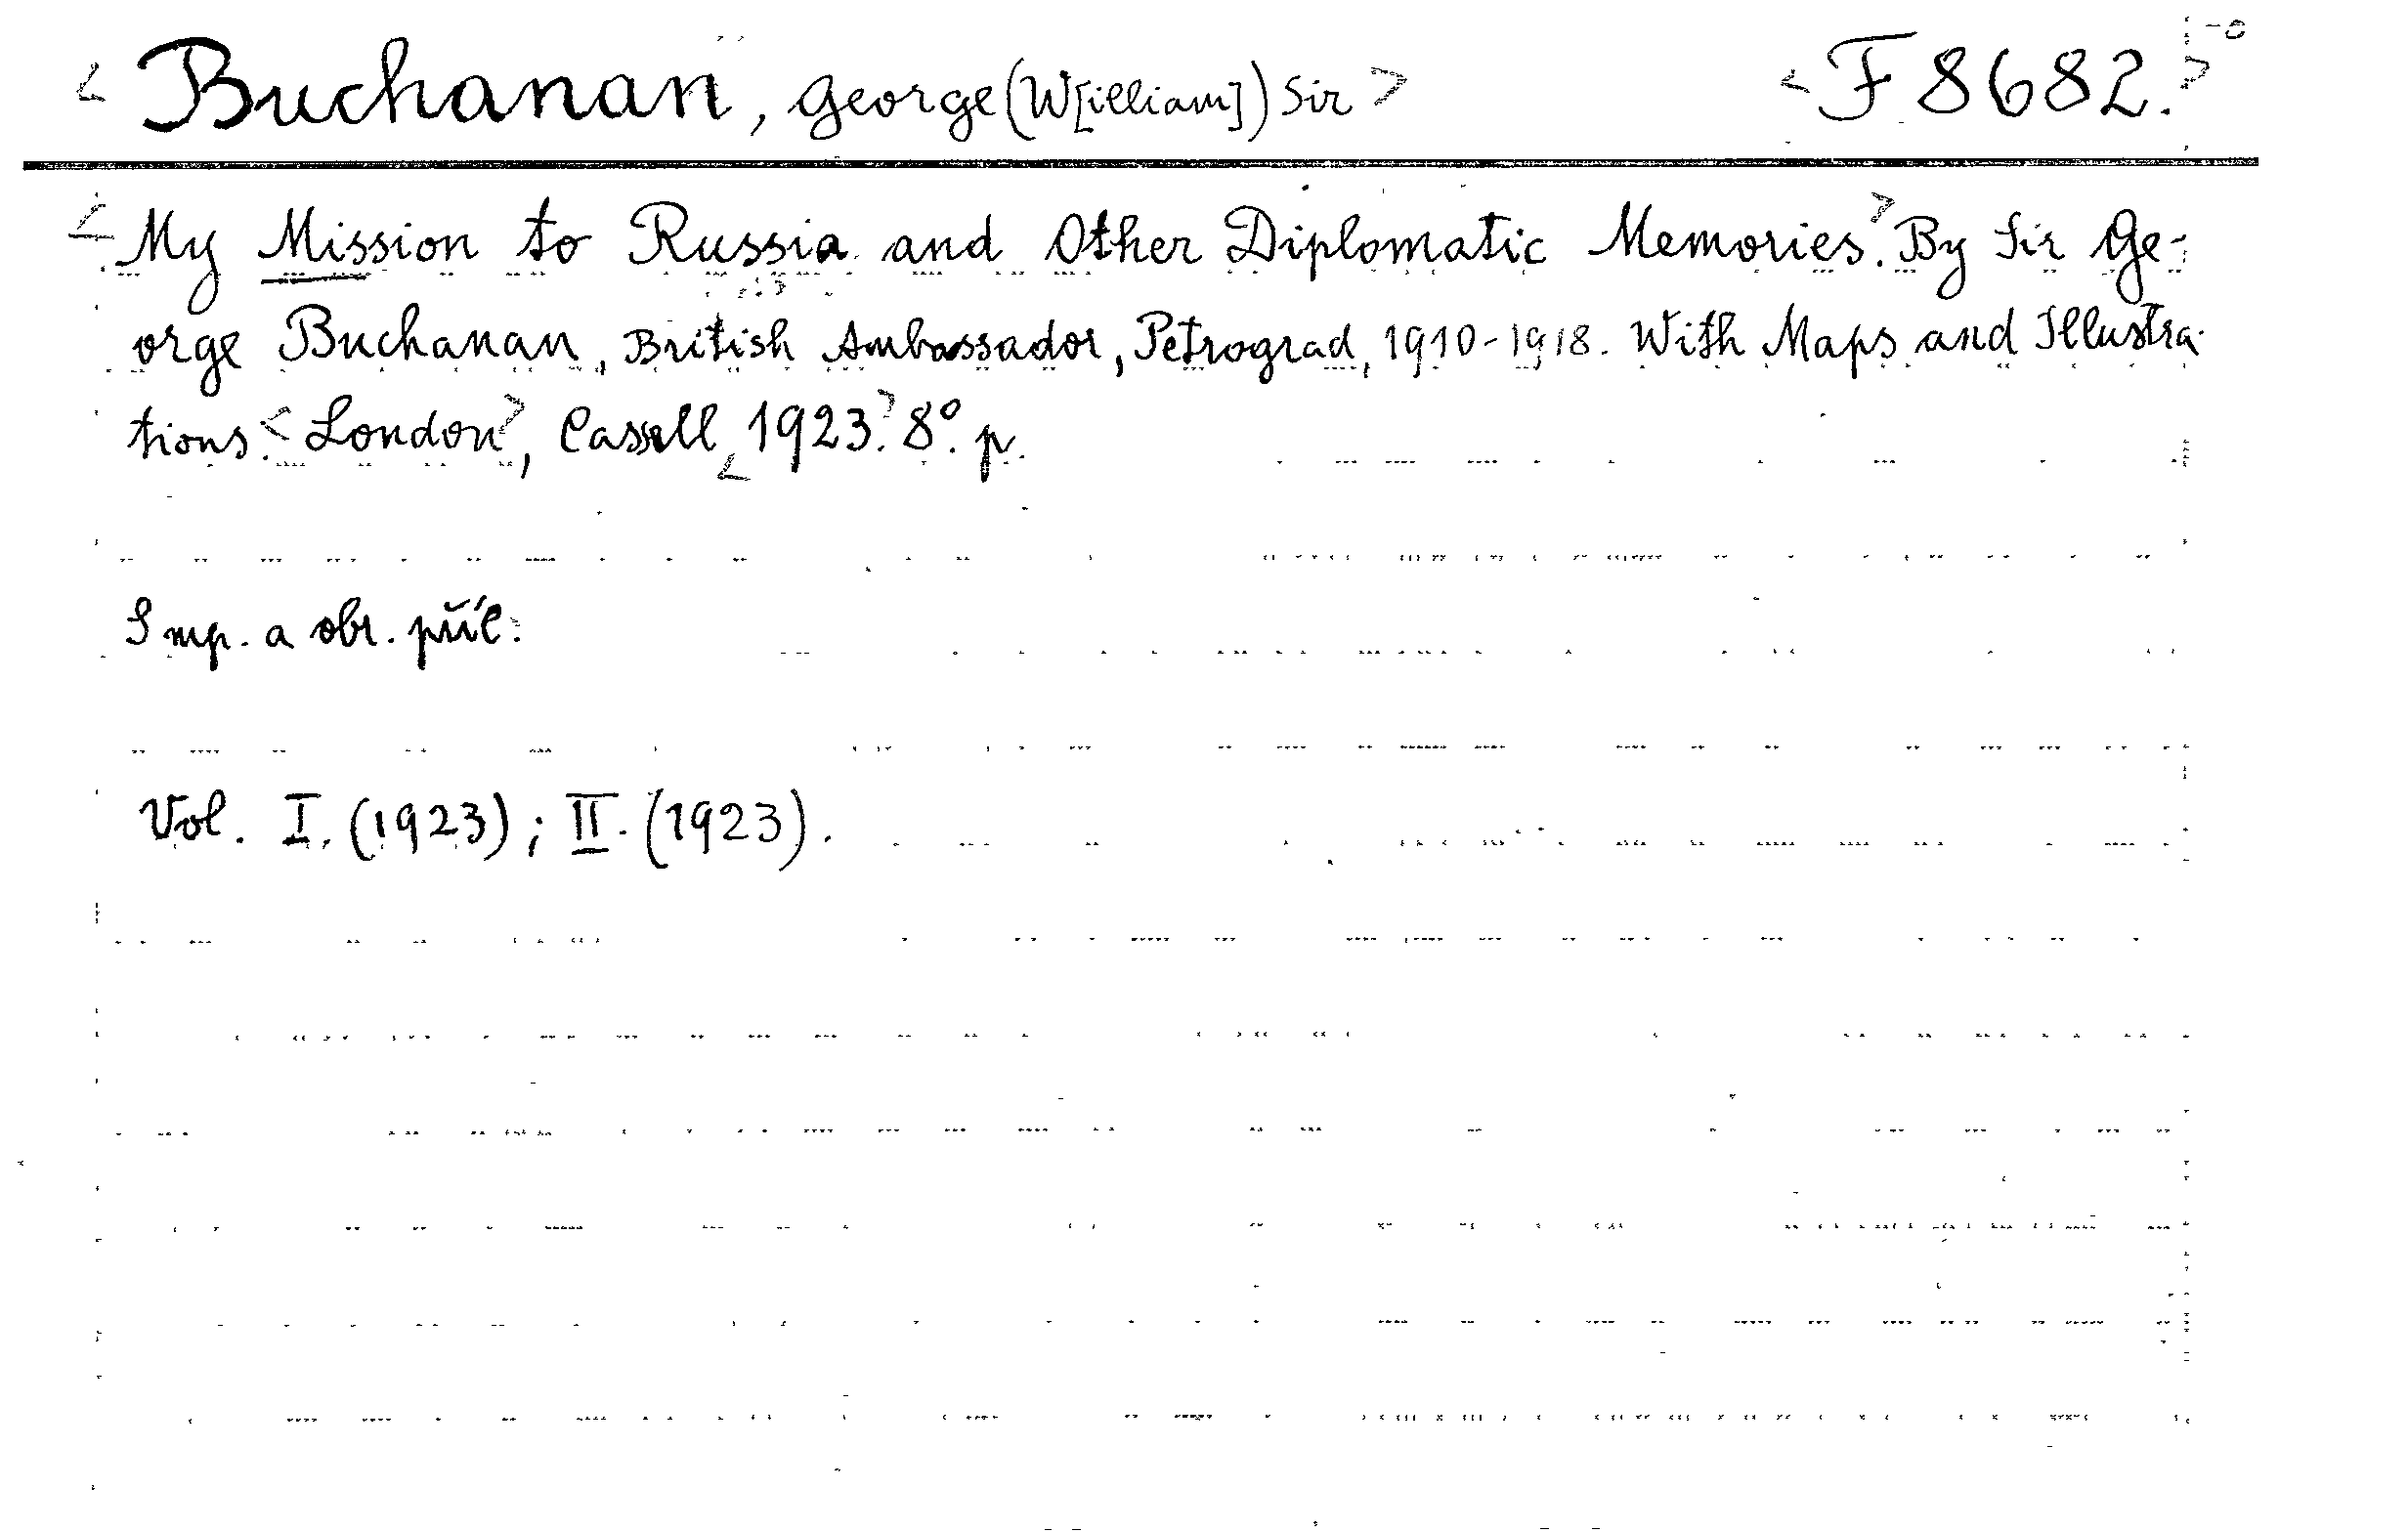 < Buchanan, George (W[illiam]) Sir > < F 8682. >
< My Mission to Russia and Other Diplomatic Memories. > By Sir Ge-
orge Buchanan, British Ambassador, Petrograd, 1910-1918. With Maps and Illustra-
tions. < London >, Cassell, < 1923. > 8°. p.
S mp. a obr. příl.
Vol. I. (1923); II. (1923).